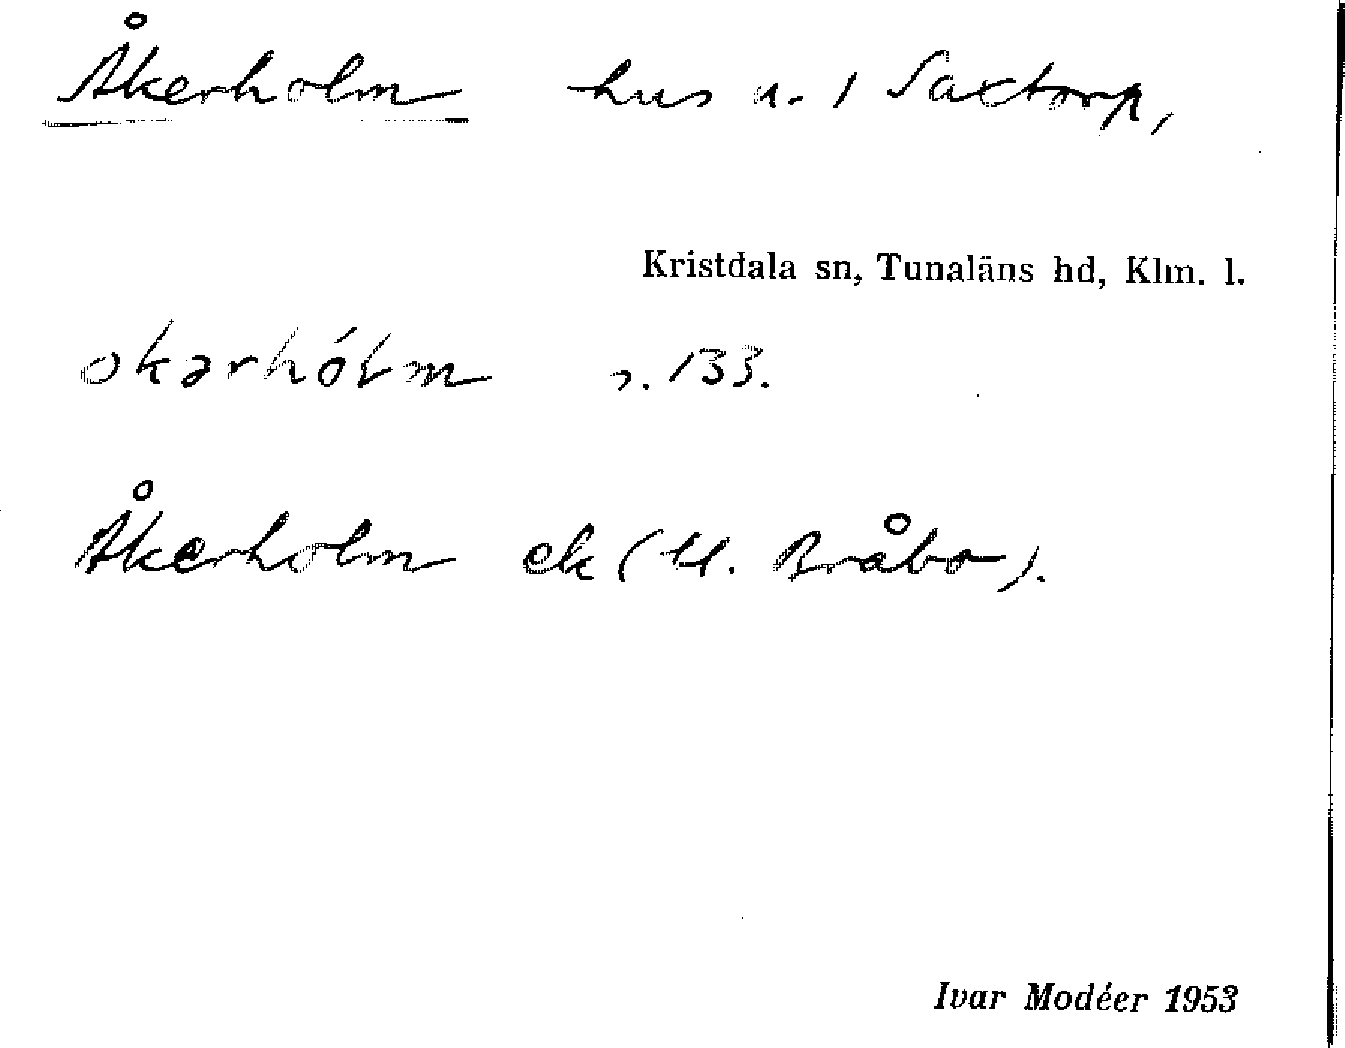 Åkerholm hus u. 1 Saxtorp,
Kristdala sn, Tunaläns hd, Klm. l.
okarhólm s. 133.
Åkerholm ek ( u. Bråbo).
Ivar Modéer 1953